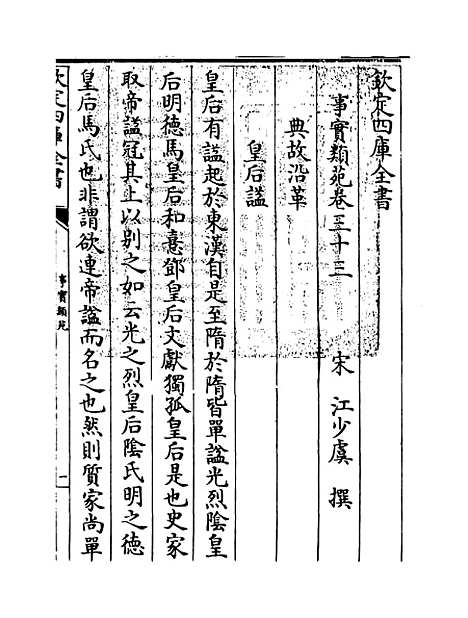 欽定四庫全書
事實類苑卷三十三 宋 江少虞 撰
典故沿革
皇后謚
皇后有謚起於東漢自是至隋於隋皆單謚光烈陰皇
后明德馬皇后和憙鄧皇后文獻獨孤皇后是也史家
取帝謚冠其上以别之如云光之烈皇后陰氏明之德
皇后馬氏也非謂欲連帝謚而名之也然則質家尚單
欽定四庫全書
事實類苑
一